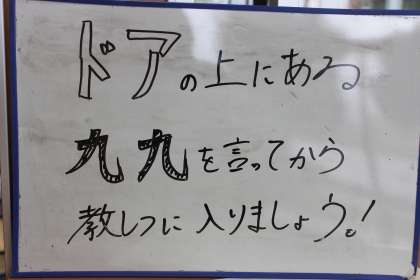 ドアの上にある
九九を言ってから
教しつに入りましょう!